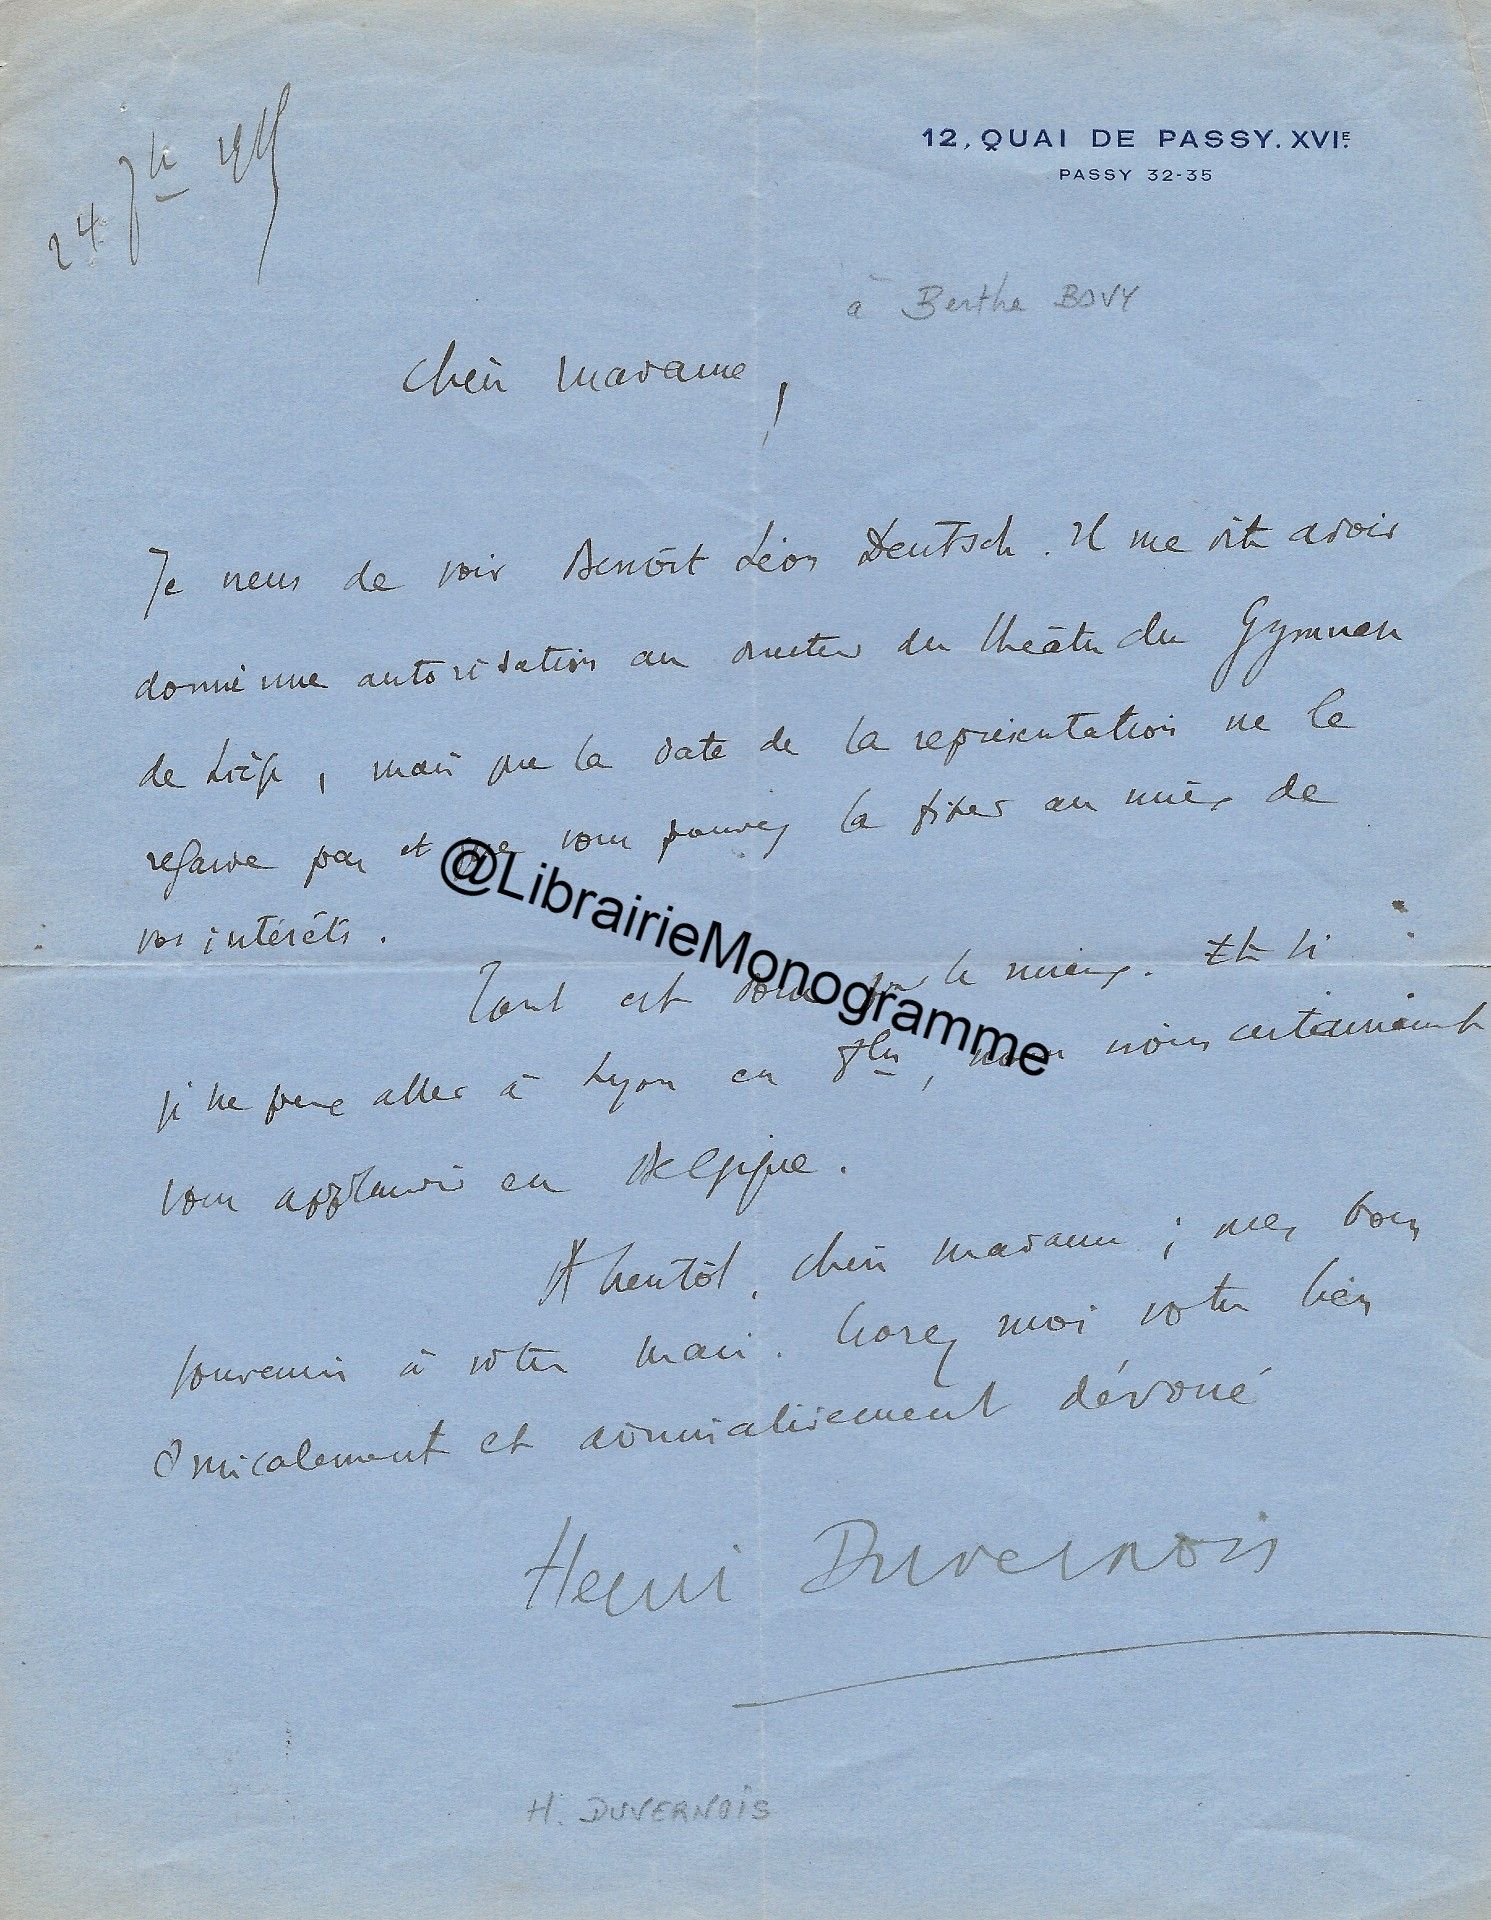 12, QUAI DE PASSY. XVIE.
PASSY 32-35
24 7bre
à Berthe BOVY
Chère Madame,
Je viens de voir Benoît Léon Deutsch. Il me dit avoir
donné une autorisation au directeur du théâtre du Gymnase
de Liège, mais que la date de la représentation ne le
regarde pas et que vous pouvez la fixer au mieux de
vos intérêts.
Tout est donc pour le mieux. Et si
je ne peux aller à Lyon en 8bre, nous irons certainement
vous applaudir en Belgique.
A bientôt, chère madame ; mes bons
souvenirs à votre mari. Croyez moi votre bien
amicalement et admirativement dévoué
Henri Duvernois
H. DUVERNOIS
@LibrairieMonogramme